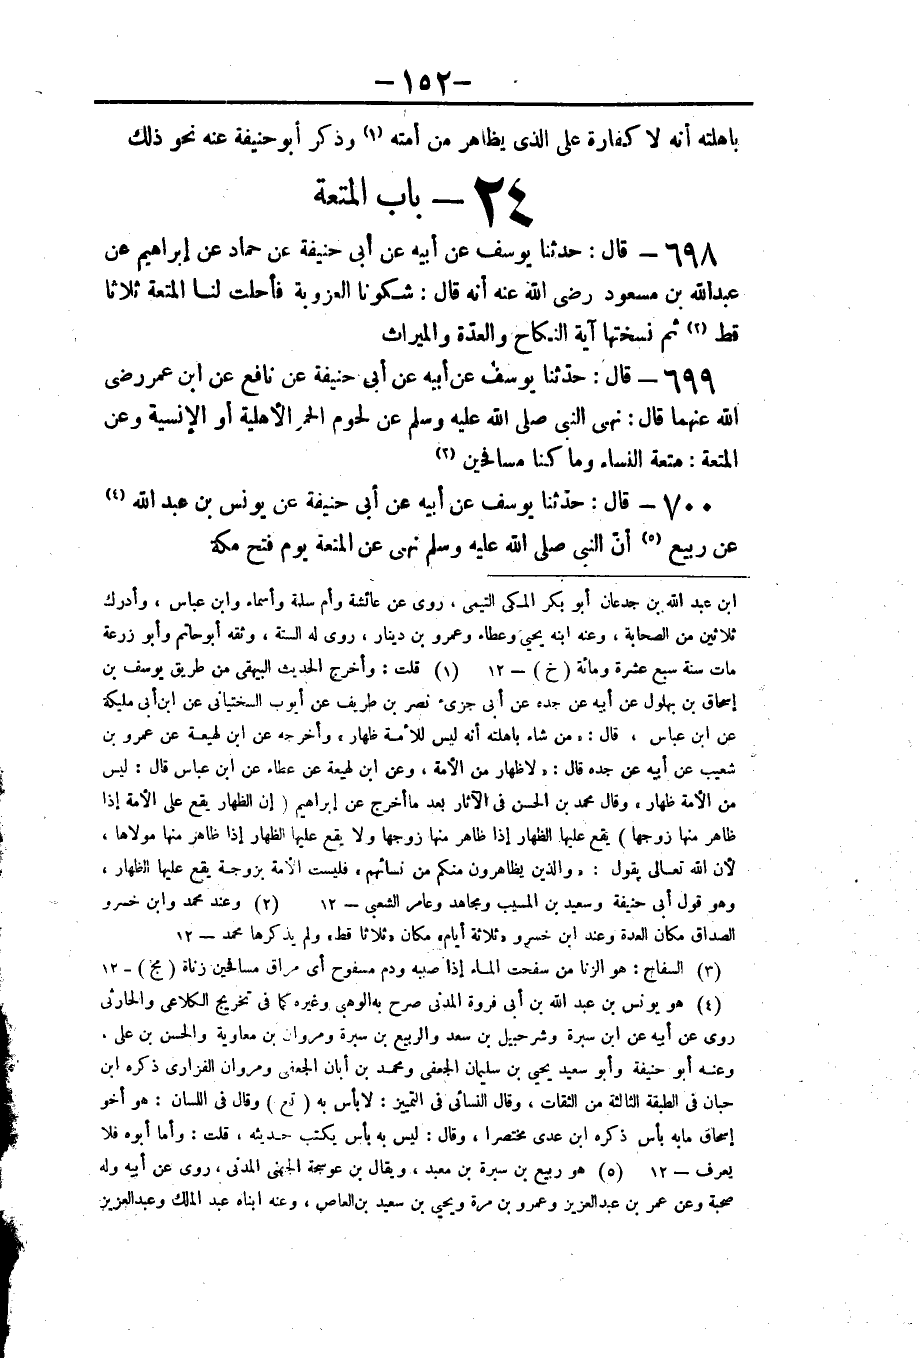 -١٥٢-
باهلته أنه لا كفارة على الذى يظاهر من أمته (١) وذكر أبو حنيفة عنه نحو ذلك
٢٤ — باب المتعة
٦٩٨ — قال : حدثنا يوسف عن أبيه عن أبى حنيفة عن حماد عن إبراهيم عن
عبدالله بن مسعود رضى الله عنه أنه قال : شكونا العزوبة فأحلت لنا المتعة ثلاثا
قط (٢) ثم نسختها آية النكاح والعدّة والميراث
٦٩٩ — قال : حدّثنا يوسف عن أبيه عن أبى حنيفة عن نافع عن ابن عمر رضى
الله عنهما قال : نهى النبى صلى الله عليه وسلم عن لحوم الحمر الأهلية أو الإنسية وعن
المتعة : متعة النساء وما كنا مسافحين (٣)
٧٠٠ — قال : حدّثنا يوسف عن أبيه عن أبى حنيفة عن يونس بن عبد الله (٤)
عن ربيع (٥) أنّ النبى صلى الله عليه وسلم نهى عن المتعة يوم فتح مكة
ابن عبد الله بن جدعان أبو بكر المكى التيمى ، روى عن عائشة وأم سلمة وأسماء وابن عباس ، وأدرك
ثلاثين من الصحابة ، وعنه ابنه يحيى وعطاء وعمرو بن دينار ، روى له الستة ، وثقه أبوحاتم وأبو زرعة
مات سنة سبع عشرة ومائة ( خ ) — ١٢ (١) قلت : وأخرج الحديث البيهقى من طريق يوسف بن
إسحاق بن بهلول عن أبيه عن جده عن أبى جزىء نصر بن طريف عن أيوب السختيانى عن ابن أبى مليكة
عن ابن عباس ، قال : «من شاء باهلته أنه ليس للأمة ظهار» وأخرجه عن ابن لهيعة عن عمرو بن
شعيب عن أبيه عن جده قال : «لاظهار من الأمة» وعن ابن لهيعة عن عطاء عن ابن عباس قال : ليس
من الأمة ظهار ، وقال محمد بن الحسن فى الآثار بعد ماأخرج عن إبراهيم ( إن الظهار يقع على الأمة إذا
ظاهر منها زوجها ) يقع عليها الظهار إذا ظاهر منها زوجها ولا يقع عليها الظهار إذا ظاهر منها مولاها ،
لأن الله تعالى يقول : «والذين يظاهرون منكم من نسائهم» فليست الأمة بزوجة يقع عليها الظهار ،
وهو قول أبى حنيفة وسعيد بن المسيب ومجاهد وعامر الشعبى — ١٢ (٢) وعند محمد وابن خسرو
الصداق مكان العدة وعند ابن خسرو «ثلاثة أيام» مكان «ثلاثا قط» ولم يذكرها محمد — ١٢
(٣) السفاح : هو الزنا من سفحت الماء إذا صببه ودم مسفوح أى مراق مسافحين زناة ( مج ) - ١٢
(٤) هو يونس بن عبد الله بن أبى فروة المدنى صرح به الوهبى وغيره كما فى تخريج الكلاعى والحارثى
روى عن أبيه عن ابن سبرة وشرحبيل بن سعد والربيع بن سبرة ومروان بن معاوية والحسن بن على .
وعنه أبو حنيفة وأبو سعيد يحيى بن سليمان الجعفى ومحمد بن أبان الجعفى ومروان الفزارى ذكره ابن
حبان فى الطبقة الثالثة من الثقات ، وقال النسائى فى التمييز : لابأس به ( تع ) وقال فى اللسان : هو أخو
إسحاق مابه بأس ذكره ابن عدى مختصرا ، وقال : ليس به بأس يكتب حديثه ، قلت : وأما أبوه فلا
يعرف — ١٢ (٥) هو ربيع بن سبرة بن معبد ، ويقال بن عوسجة الجهنى المدنى ، روى عن أبيه وله
صحبة وعن عمر بن عبدالعزيز وعمرو بن مرة ويحيى بن سعيد بن العاص ، وعنه ابناه عبد الملك وعبدالعزيز